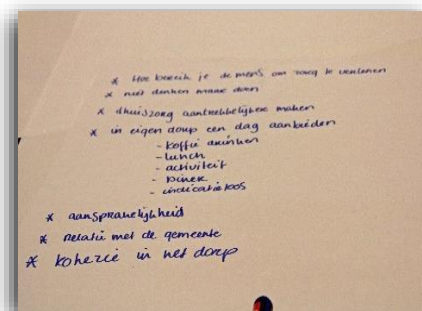 * Hoe bereik je de mens om zorg te verlenen
* niet denken maar doen
* thuiszorg aantrekkelijker maken
* in eigen dorp een dag aanbieden
- koffie drinken
- lunch
- activiteit
- diner
- indicatieloos
* aansprakelijkheid
* relatie met de gemeente
* kohezie in het dorp